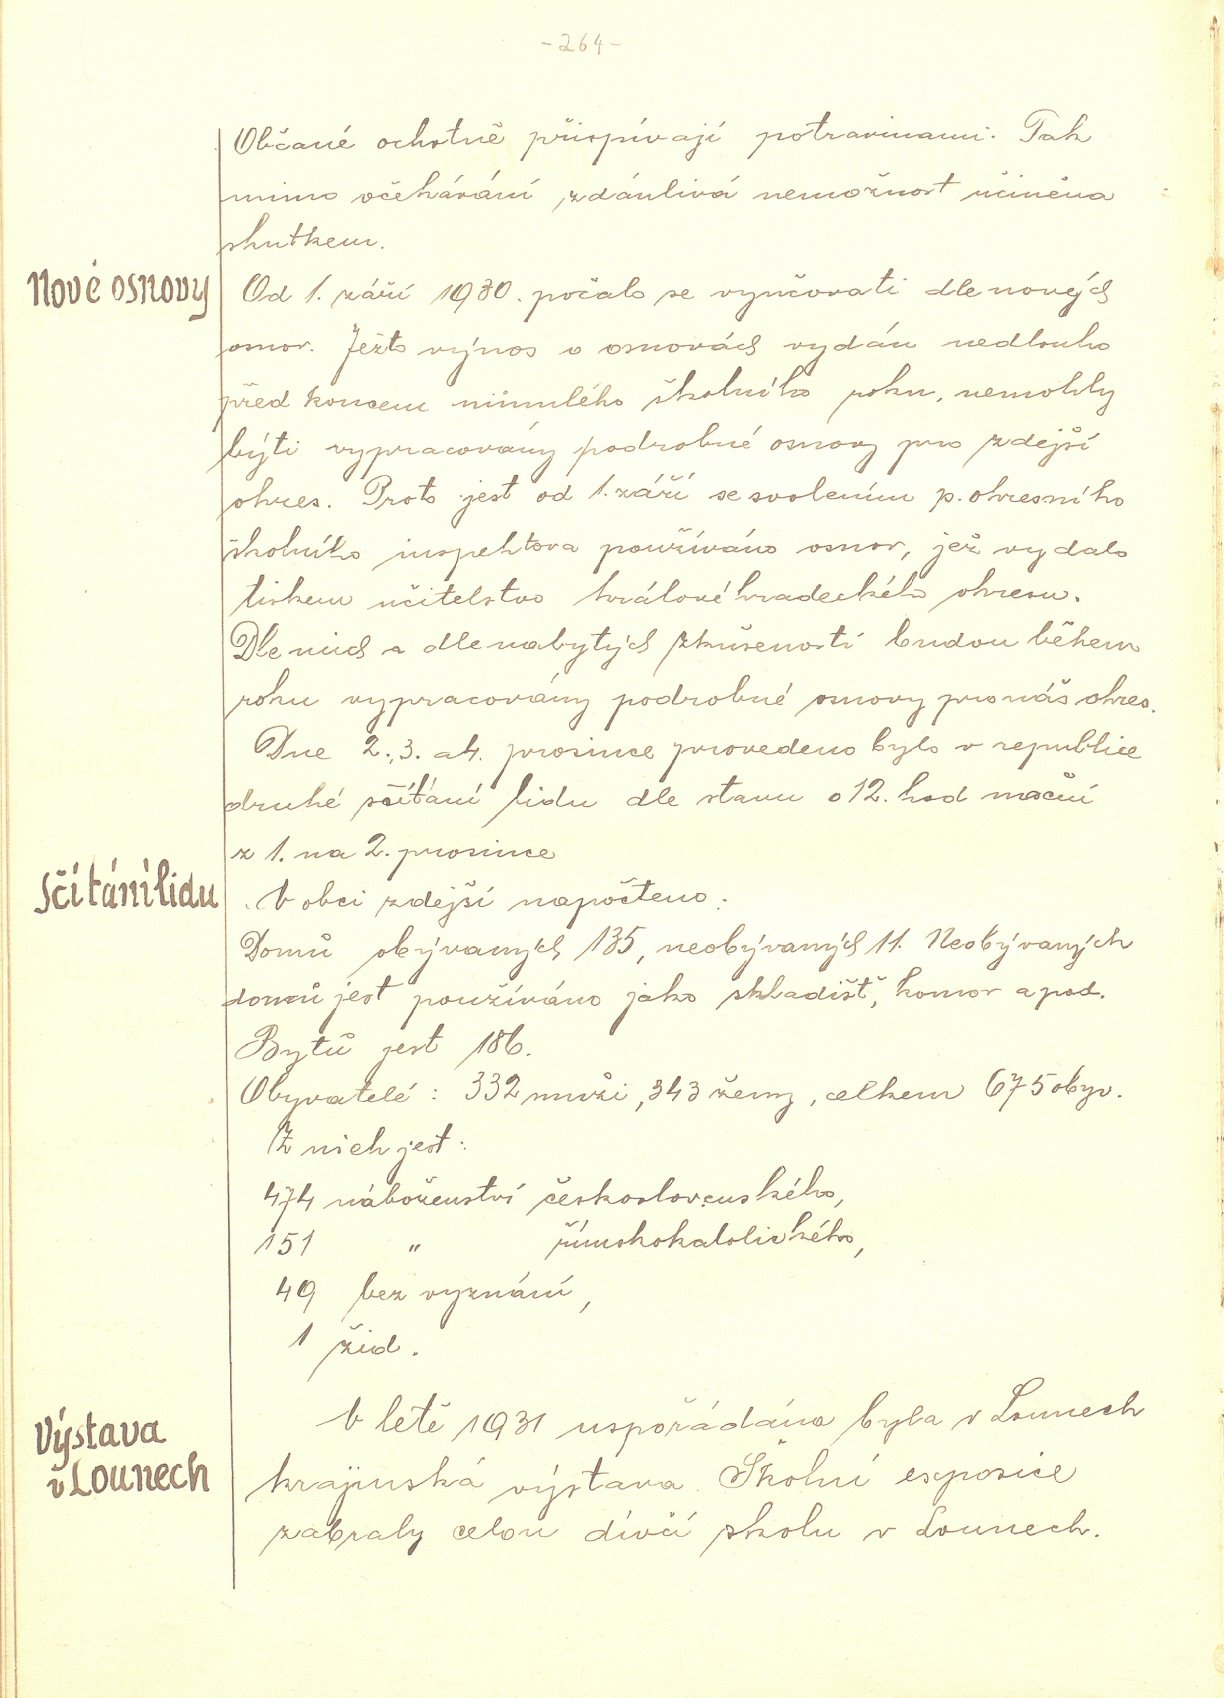 -264-
Občané ochotně přispívají potravinami. Tak
mimo očekávání, zdánlivá nemožnost učiněna
skutkem.
Nové osnovy
Od 1. září 1930. počalo se vyučovati dle nových
osnov. Ježto výnos o osnovách vydán nedlouho
před koncem minulého školního roku, nemohly
býti vypracovány podrobné osnovy pro zdejší
okres. Proto jest od 1. září se svolením p. okresního
školního inspektora používáno osnov, jež vydalo
tiskem učitelstvo královéhradeckého okresu.
Dle nich a dle nabytých zkušeností budou během
roku vypracovány podrobné osnovy pro náš okres.
Dne 2., 3. a 4. prosince provedeno bylo v republice
druhé sčítání lidu dle stavu o 12. hod noční
z 1. na 2. prosince
Sčítání lidu
V obci zdejší napočteno:
Domů obývaných 135, neobývaných 11. Neobývaných
domů jest používáno jako skladišť, komor a pod.
Bytů jest 186.
Obyvatelé: 332 muži, 343 ženy, celkem 675 obyv.
Z nich jest:
474 náboženství československého,
151 " římskokatolického,
49 bez vyznání,
1 žid.
Výstava
v Lounech
V létě 1931 uspořádána byla v Lounech
krajinská výstava. Školní exposice
zabraly celou dívčí školu v Lounech.